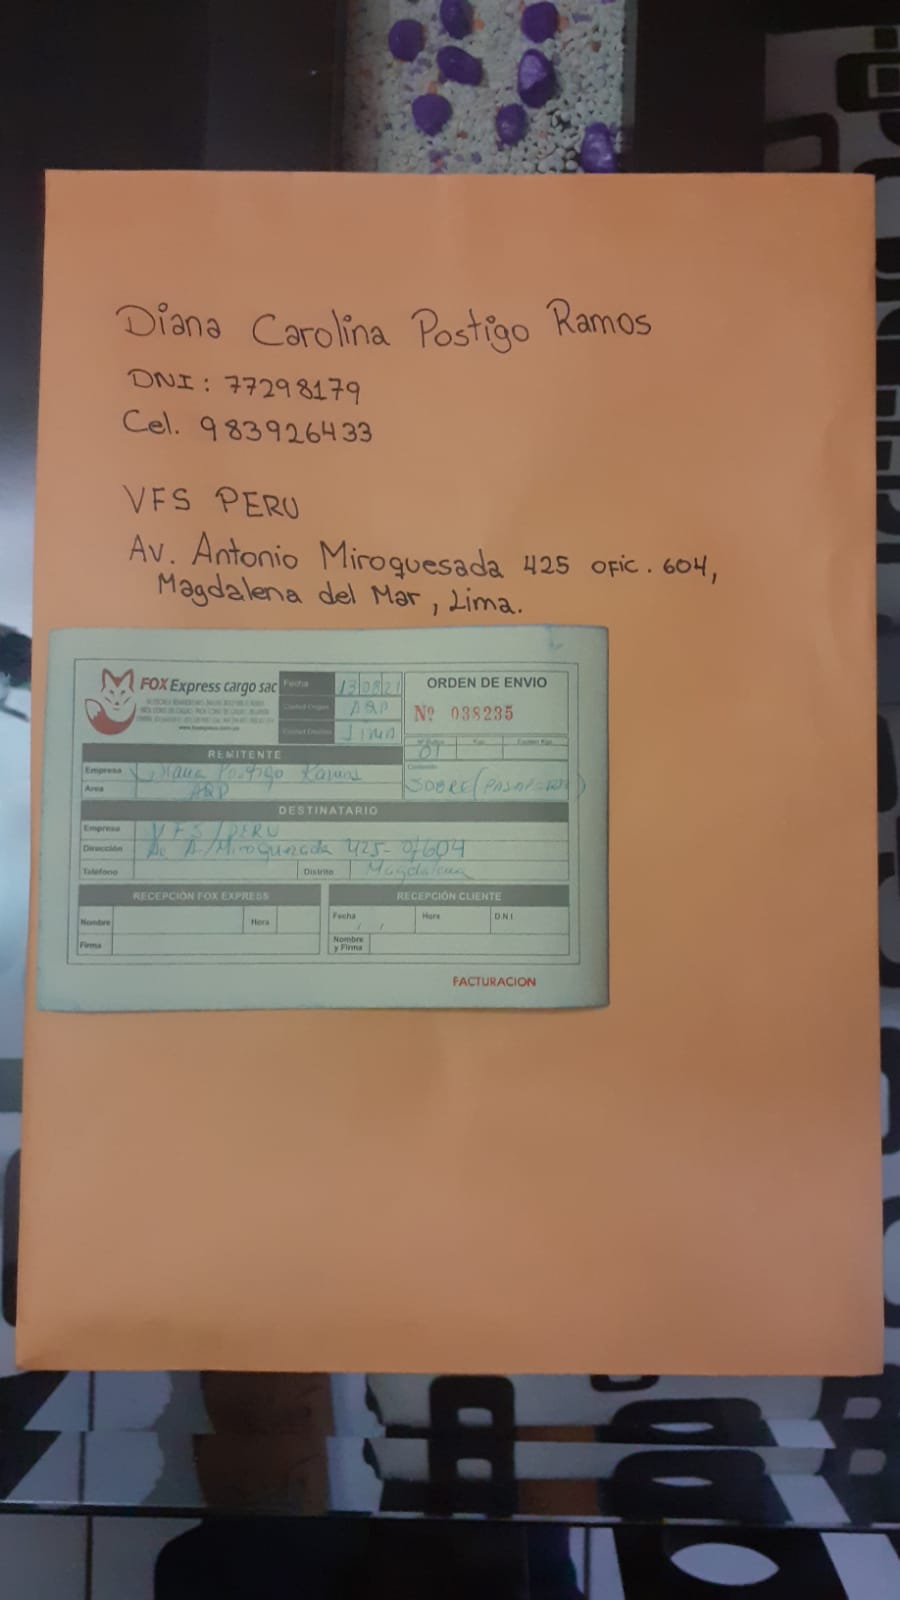 Diana Carolina Postigo Ramos
DNI: 77298179
Cel. 983926433
VFS PERU
Av. Antonio Miroquesada 425 OFIC. 604,
Magdalena del Mar, Lima.
FOX Express cargo sac
Fecha 13 08 21
AQP
LIMA
ORDEN DE ENVIO
Nº 038235
01
REMITENTE
Empresa Diana Postigo Ramos
Area AQP
SOBRE (PASAPORTE)
DESTINATARIO
Empresa VFS/PERU
Dirección Av A. Miroquezada 425- of 604
Teléfono Distrito Magdalena
RECEPCIÓN FOX EXPRESS
Nombre Hora
Firma
RECEPCIÓN CLIENTE
Fecha / / Hora D.N.I.
Nombre y Firma
FACTURACION